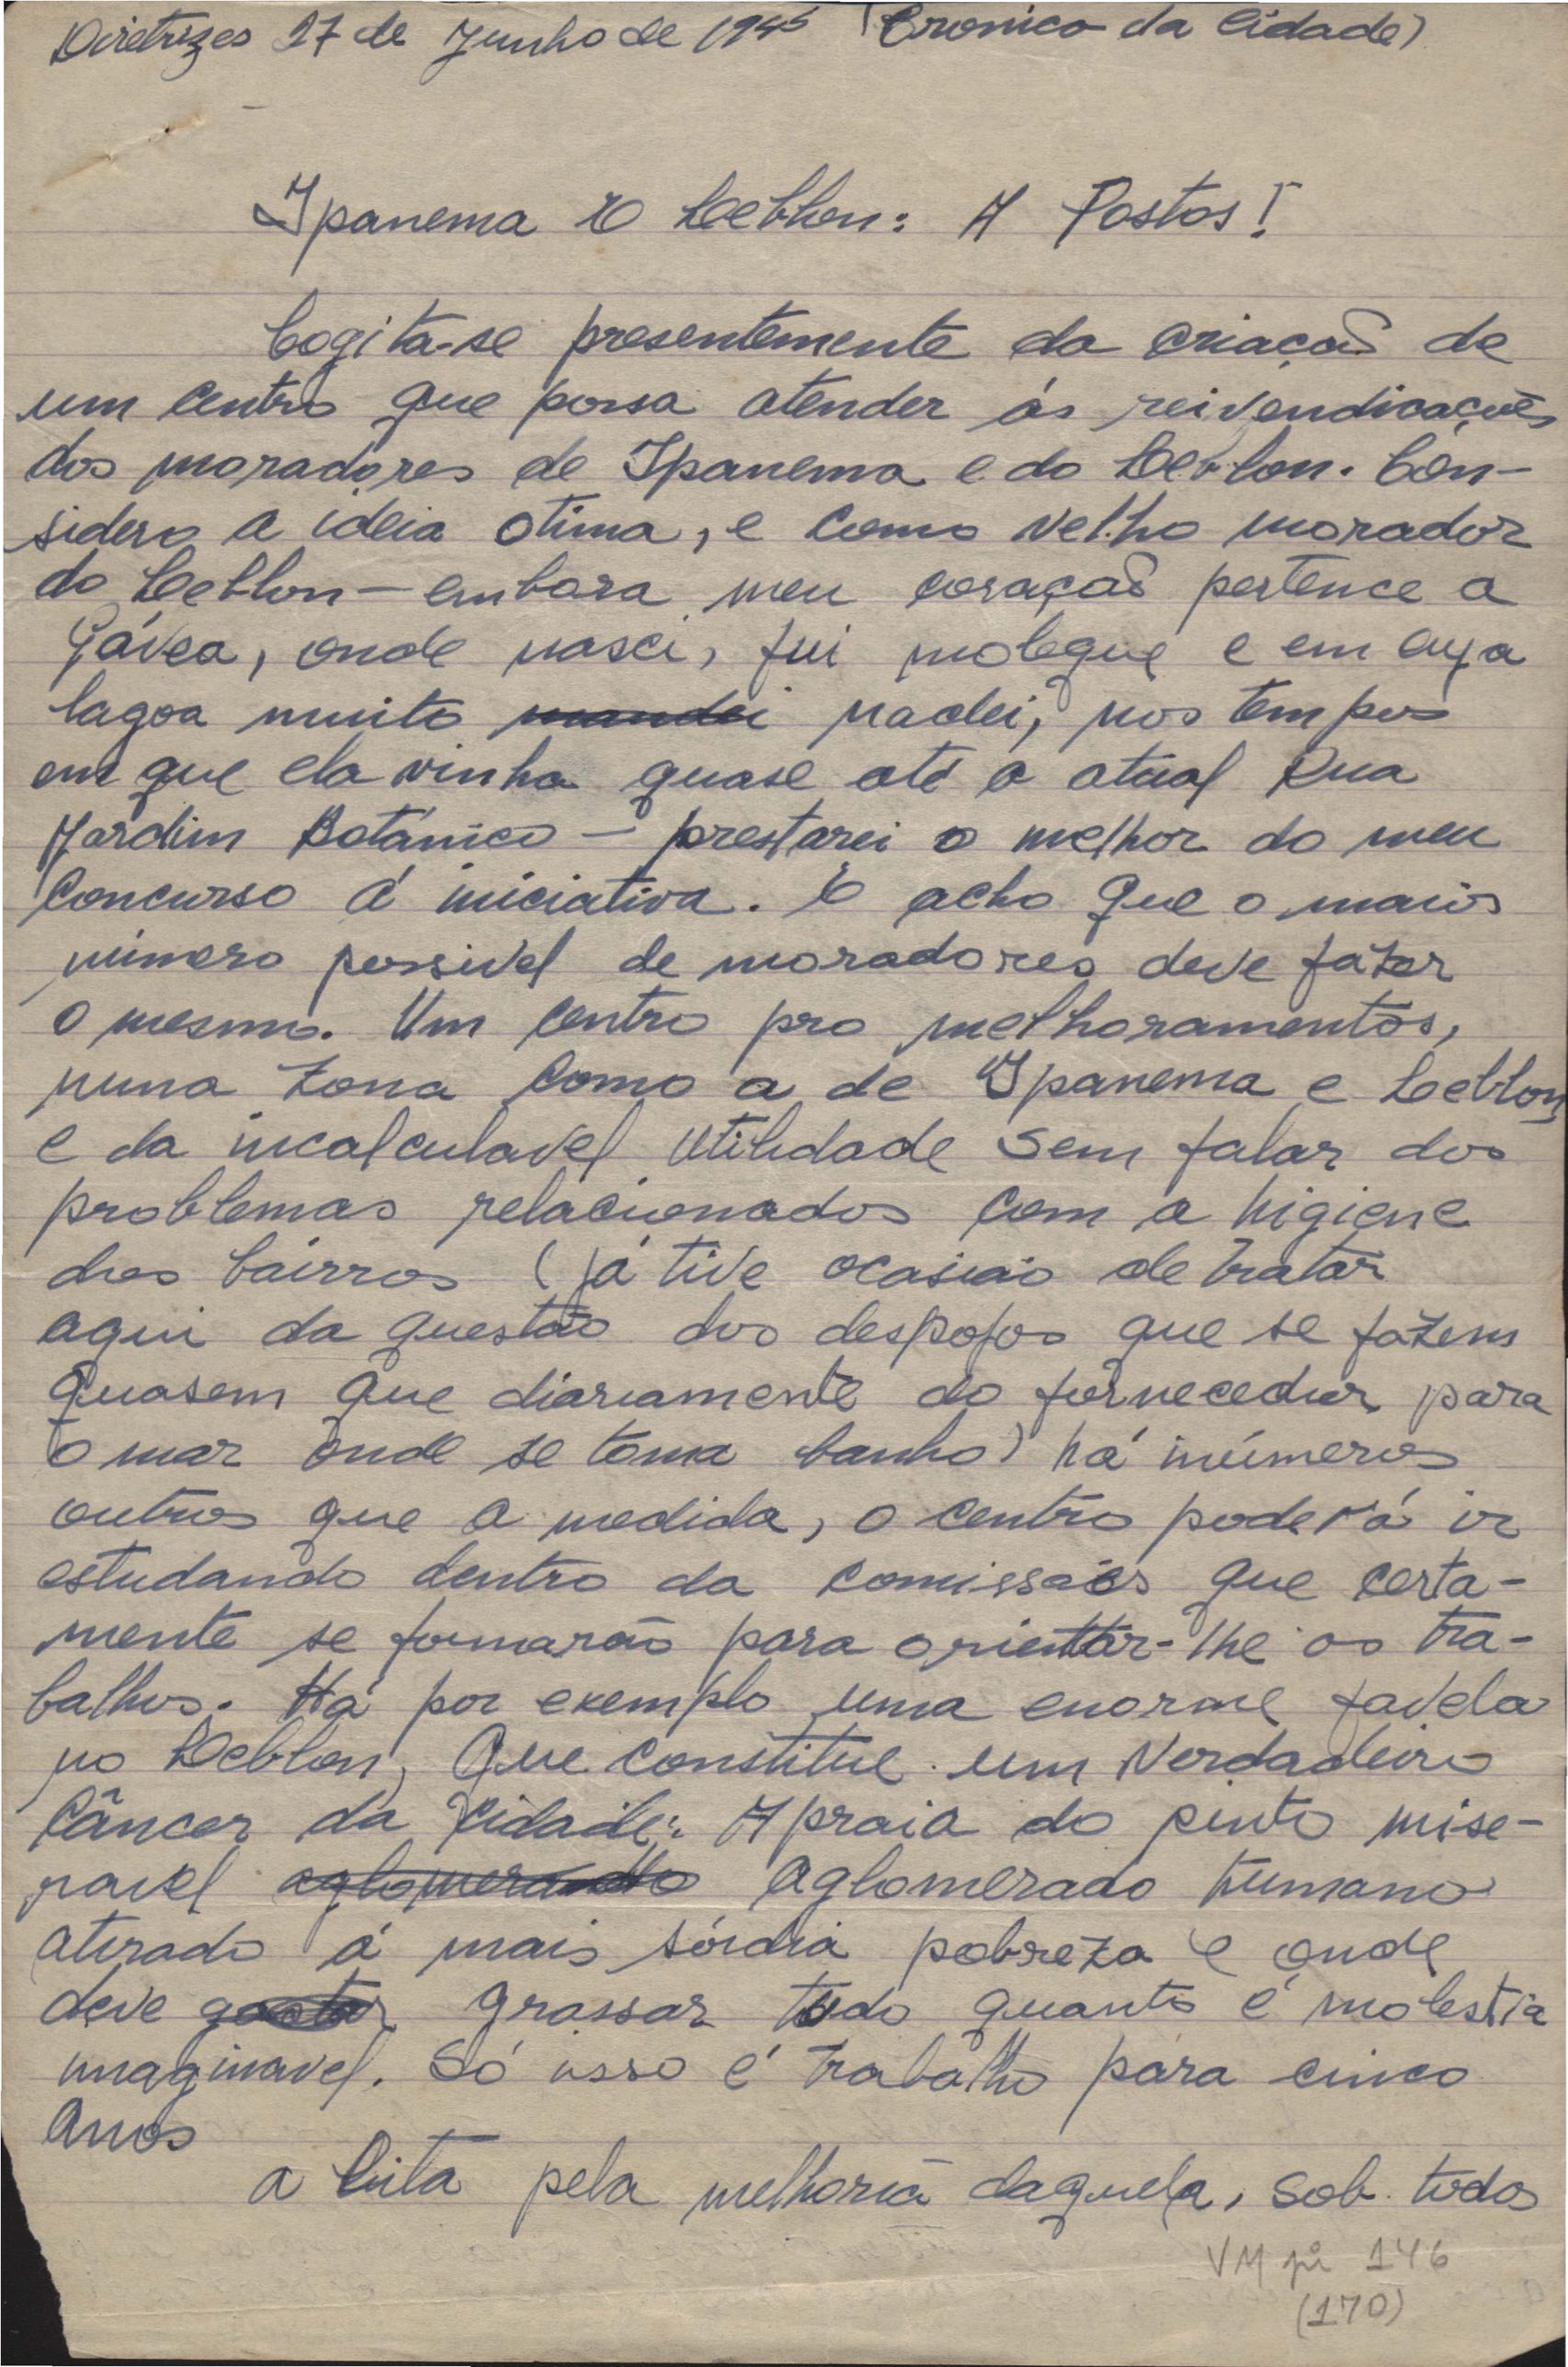 Diretrizes 27 de Junho de 1945 (Cronica da Cidade)
Ipanema E Leblon: A Postos!
Cogita-se presentemente da criação de
um centro que possa atender ás reivendicações
dos moradores de Ipanema e do Leblon. Con-
sidero a ideia otima, e como velho morador
do Leblon - embora meu coração pertence a
Gávea, onde nasci, fui moleque e em cuja
lagoa muito mandei nadei, nos tempos
em que ela vinha quase até a atual Rua
Jardim Botânico - prestarei o melhor do meu
Concurso á iniciativa. E acho que o maior
número possivel de moradores deve fazer
o mesmo. Um centro pro melhoramentos,
numa zona como a de Ipanema e Leblon,
e da incalculavel utilidade sem falar dos
problemas relacionados com a higiene
dos bairros (já tive ocasião de tratar
aqui da questão dos despojos que se fazem
quasem que diariamente do fornecedor para
o mar onde se toma banho) há inúmeros
outros que a medida, o centro poderá ir
estudando dentro da comissões que certa-
mente se formarão para orientar-lhe os tra-
balhos. Há por exemplo uma enorme favela
no Leblon, que constitue um verdadeiro
Câncer da Cidade: A praia do pinto mise-
ravel aglomerando aglomerado humano
atirado á mais sórdia pobreza e onde
deve gastar grassar tudo quanto é molestia
imaginavel. Só isso é trabalho para cinco
Anos
a luta pela melhoria daquela, sob todos
VM pi 146
(170)